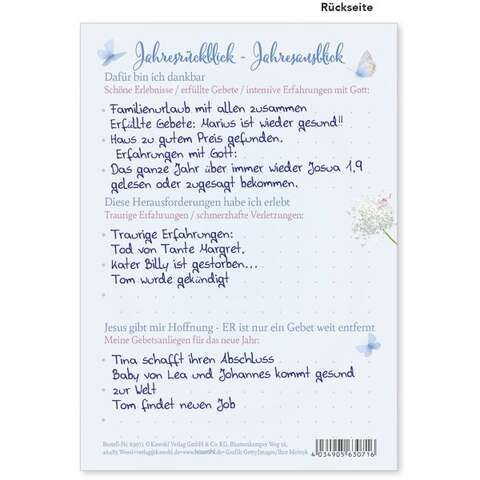 Rückseite
Jahresrückblick - Jahresausblick
Dafür bin ich dankbar
Schöne Erlebnisse / erfüllte Gebete / intensive Erfahrungen mit Gott:
Familienurlaub mit allen zusammen
Erfüllte Gebete: Marius ist wieder gesund!!
Haus zu gutem Preis gefunden.
Erfahrungen mit Gott:
Das ganze Jahr über immer wieder Josua 1,9
gelesen oder zugesagt bekommen.
Diese Herausforderungen habe ich erlebt
Traurige Erfahrungen / schmerzhafte Verletzungen:
Traurige Erfahrungen:
Tod von Tante Margret.
Kater Billy ist gestorben...
Tom wurde gekündigt
Jesus gibt mir Hoffnung - ER ist nur ein Gebet weit entfernt
Meine Gebetsanliegen für das neue Jahr:
Tina schafft ihren Abschluss
Baby von Lea und Johannes kommt gesund
zur Welt
Tom findet neuen Job
Bestell-Nr. 63071 © Kawohl Verlag GmbH & Co. KG, Blumenkamper Weg 16,
46485 Wesel • verlag@kawohl.de • www.kawohl.de • Grafik: Getty Images /
4 034905 630716